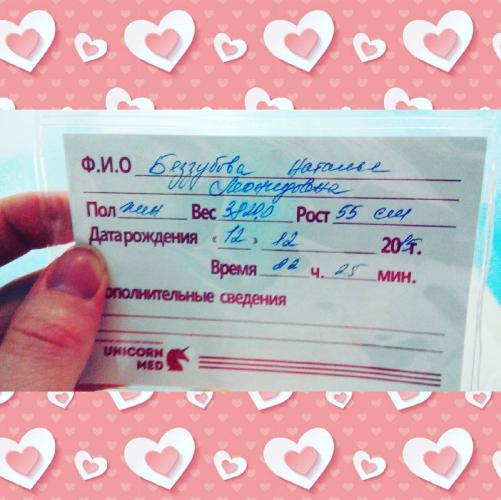 Ф.И.О Беззубова Наталье
Леонидовне
Пол жен Вес 3820,0 Рост 55 см
Дата рождения «12» 12 2015г.
Время 22 ч. 25 мин.
Дополнительные сведения
UNICORN
MED